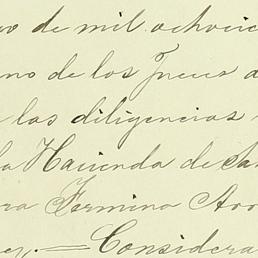 vo de mil ochocie
no de los Jueces d
las diligencias
la Hacienda de Sa
ra Fermina Aro
ey.=Considera